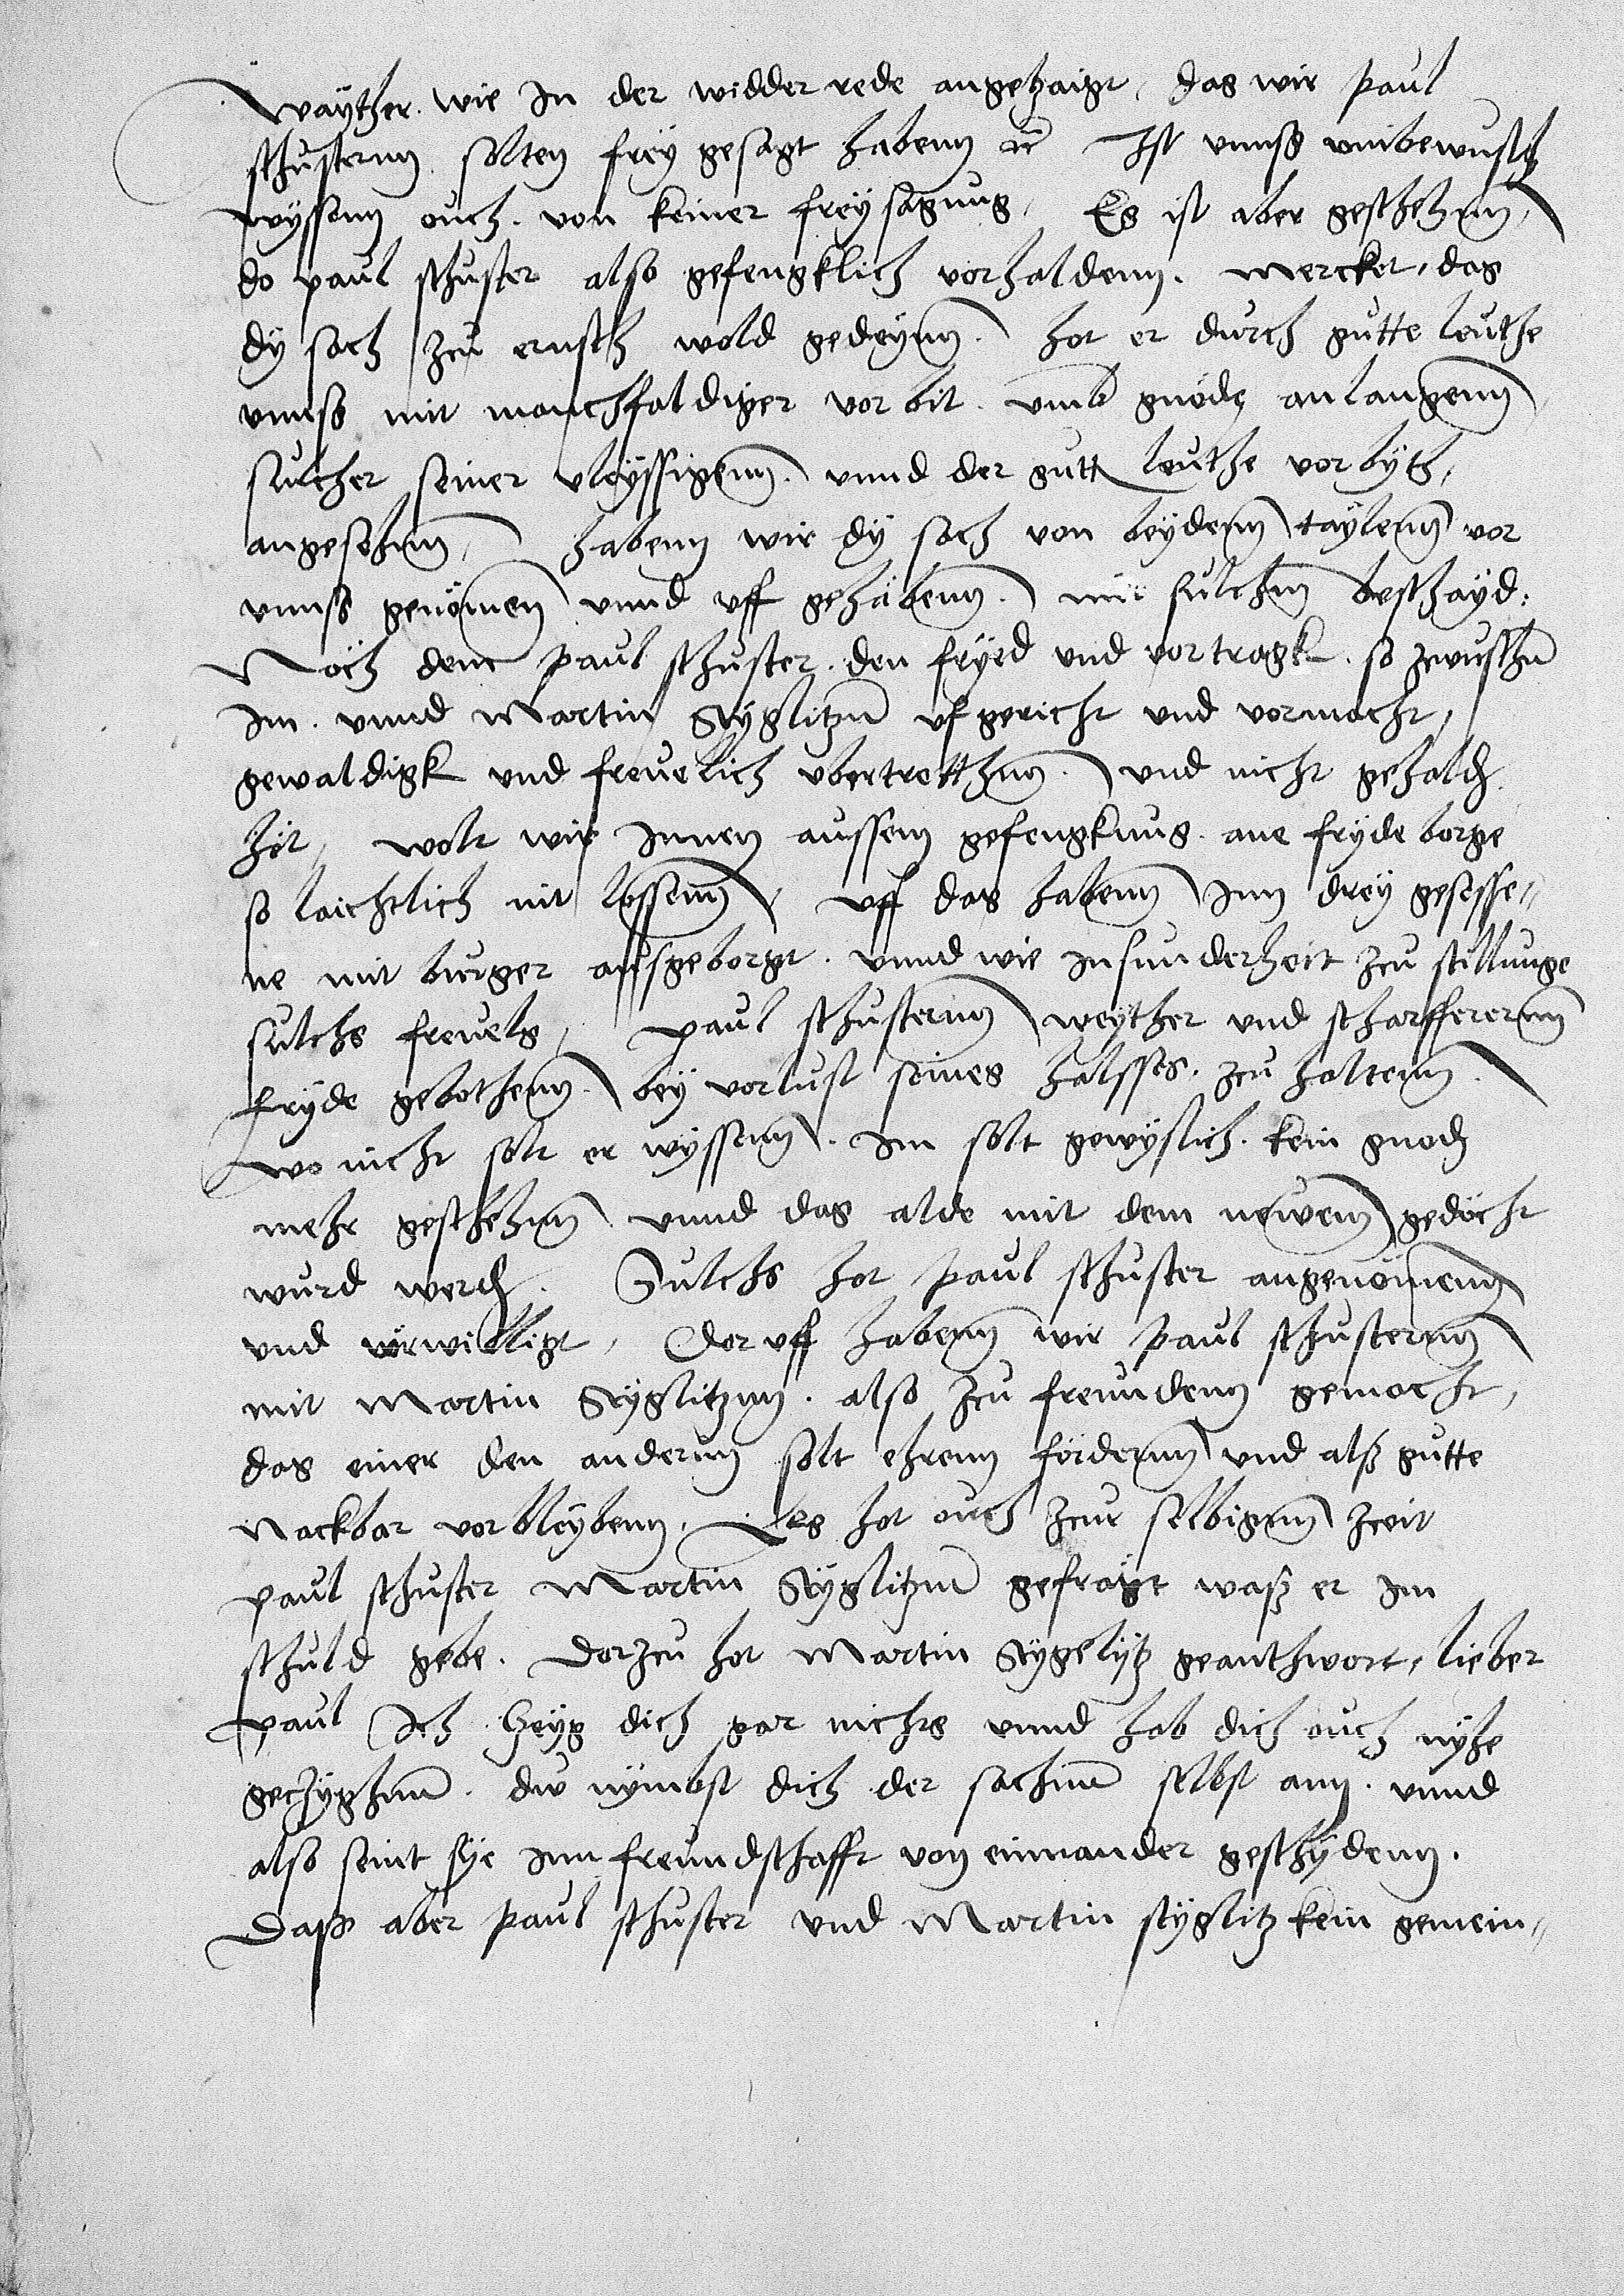 Wäyther. wie In der widder rede angetzaigt, das wir paul
schusternn solten freÿ gesagt habenn ꝛc Ist vnnß vnbewusth
wyssenn ouch. von keiner freÿsagung, Es ist aber geschehnn,
do paul schuster also gefengklich vorhaldenn. mercket, das
dÿ sach zcu ernsth wold gedeynn. hot er durch gutte leuthe
vnnß mit manchfaldiger vorbit. vmb gnode anlangenn
sulcher seiner vleÿssigenn. vnnd der gutt leuthe vorbyth,
angesehnn, habenn wir dÿ sach von beÿdenn taÿlenn vor
vnnß genomen vnnd vff gehäbenn. mit sulchen beschäyd:
Noch dem paul schuster. den fryed vnd vortragk. so zcwuschn
Im. vnnd Martin Styglitzn vfgericht vnd vormacht,
gewaldigk vnd freuelich vbertretthnn. vnd nicht gehaldn
het, wolt wir Innen aussem gefengknus. ane fryde borge
so laichtlich nit lossenn, vff das habenn Inn dreÿ gesesse„
ne mit burger außgeborgt. vnnd wie insunderheit zcu stillunge
sulchs freuels, paul schusternn weÿther vnd scharffernn
frÿde gebothenn. beÿ vorlust seines halsses. zcu haltenn.
wo nicht solt er wyssenn. Im solt gewyslich. kein gnodn
mehr geschehnn vnnd das alde mit dem newenn gedocht
wurd werdn. Sulchs hot paul schuster angenömenn
vnd vorwilligt, Dor vff habenn wir paul schusternn
mit Martin Styglitznn. also zcu freundenn gemocht,
das einer den andernn solt ehrenn fördernn vnd alß gutte
Nackbar vorbleÿbenn. Es hot ouch zcur selbigenn zceit
paul schuster Martin Styglitzn gefragt waß er im
schuld gebe. Dorzcu hot Martin Stygelytz geanthwort, lieber
paul Ich Zeyg dich gar nichts vnnd hab dich ouch nyhe
geczyghnn. du nymbst dich der sachnn selbst ann. vnnd
also seint sÿe Inn freundschafft von einnander geschÿdenn.
Daß aber paul schuster vnd Martin styglitz kein gemein„